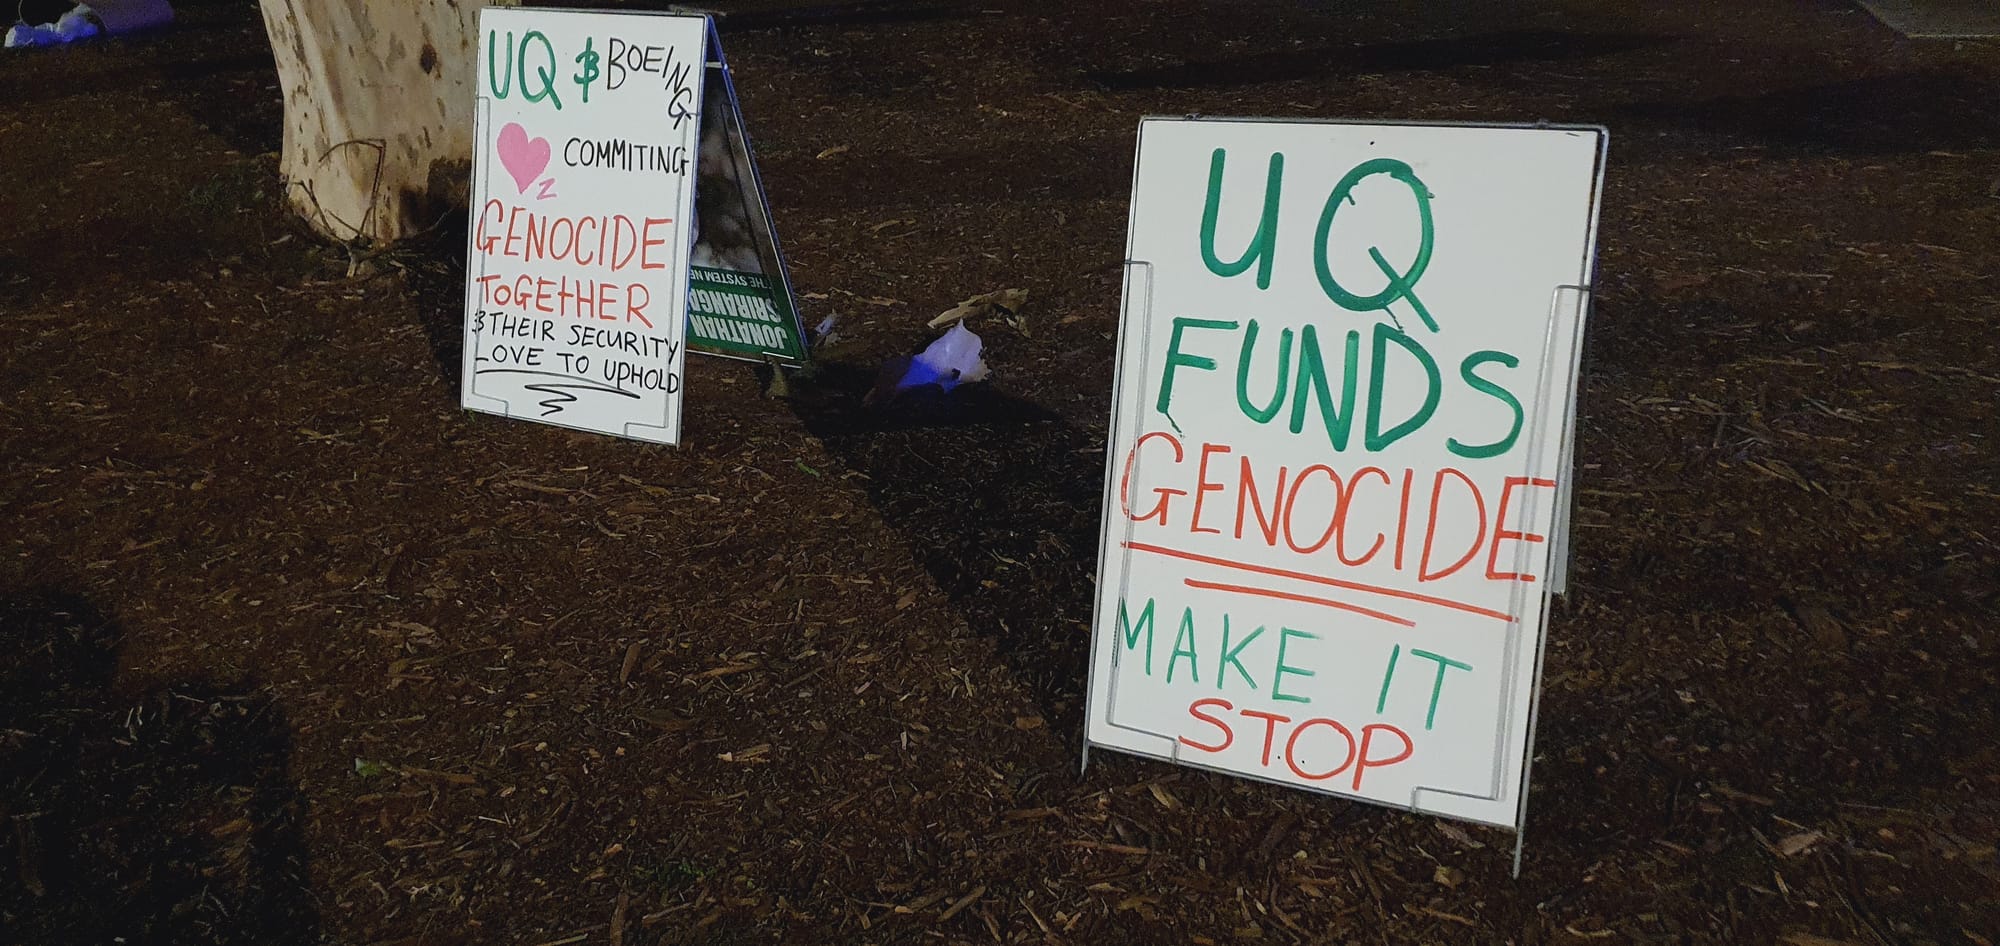 UQ & BOEING
COMMITING
GENOCIDE
TOGETHER
& THEIR SECURITY
LOVE TO UPHOLD
THE SYSTEM
JONATHAN
UQ
FUNDS
GENOCIDE
MAKE IT
STOP